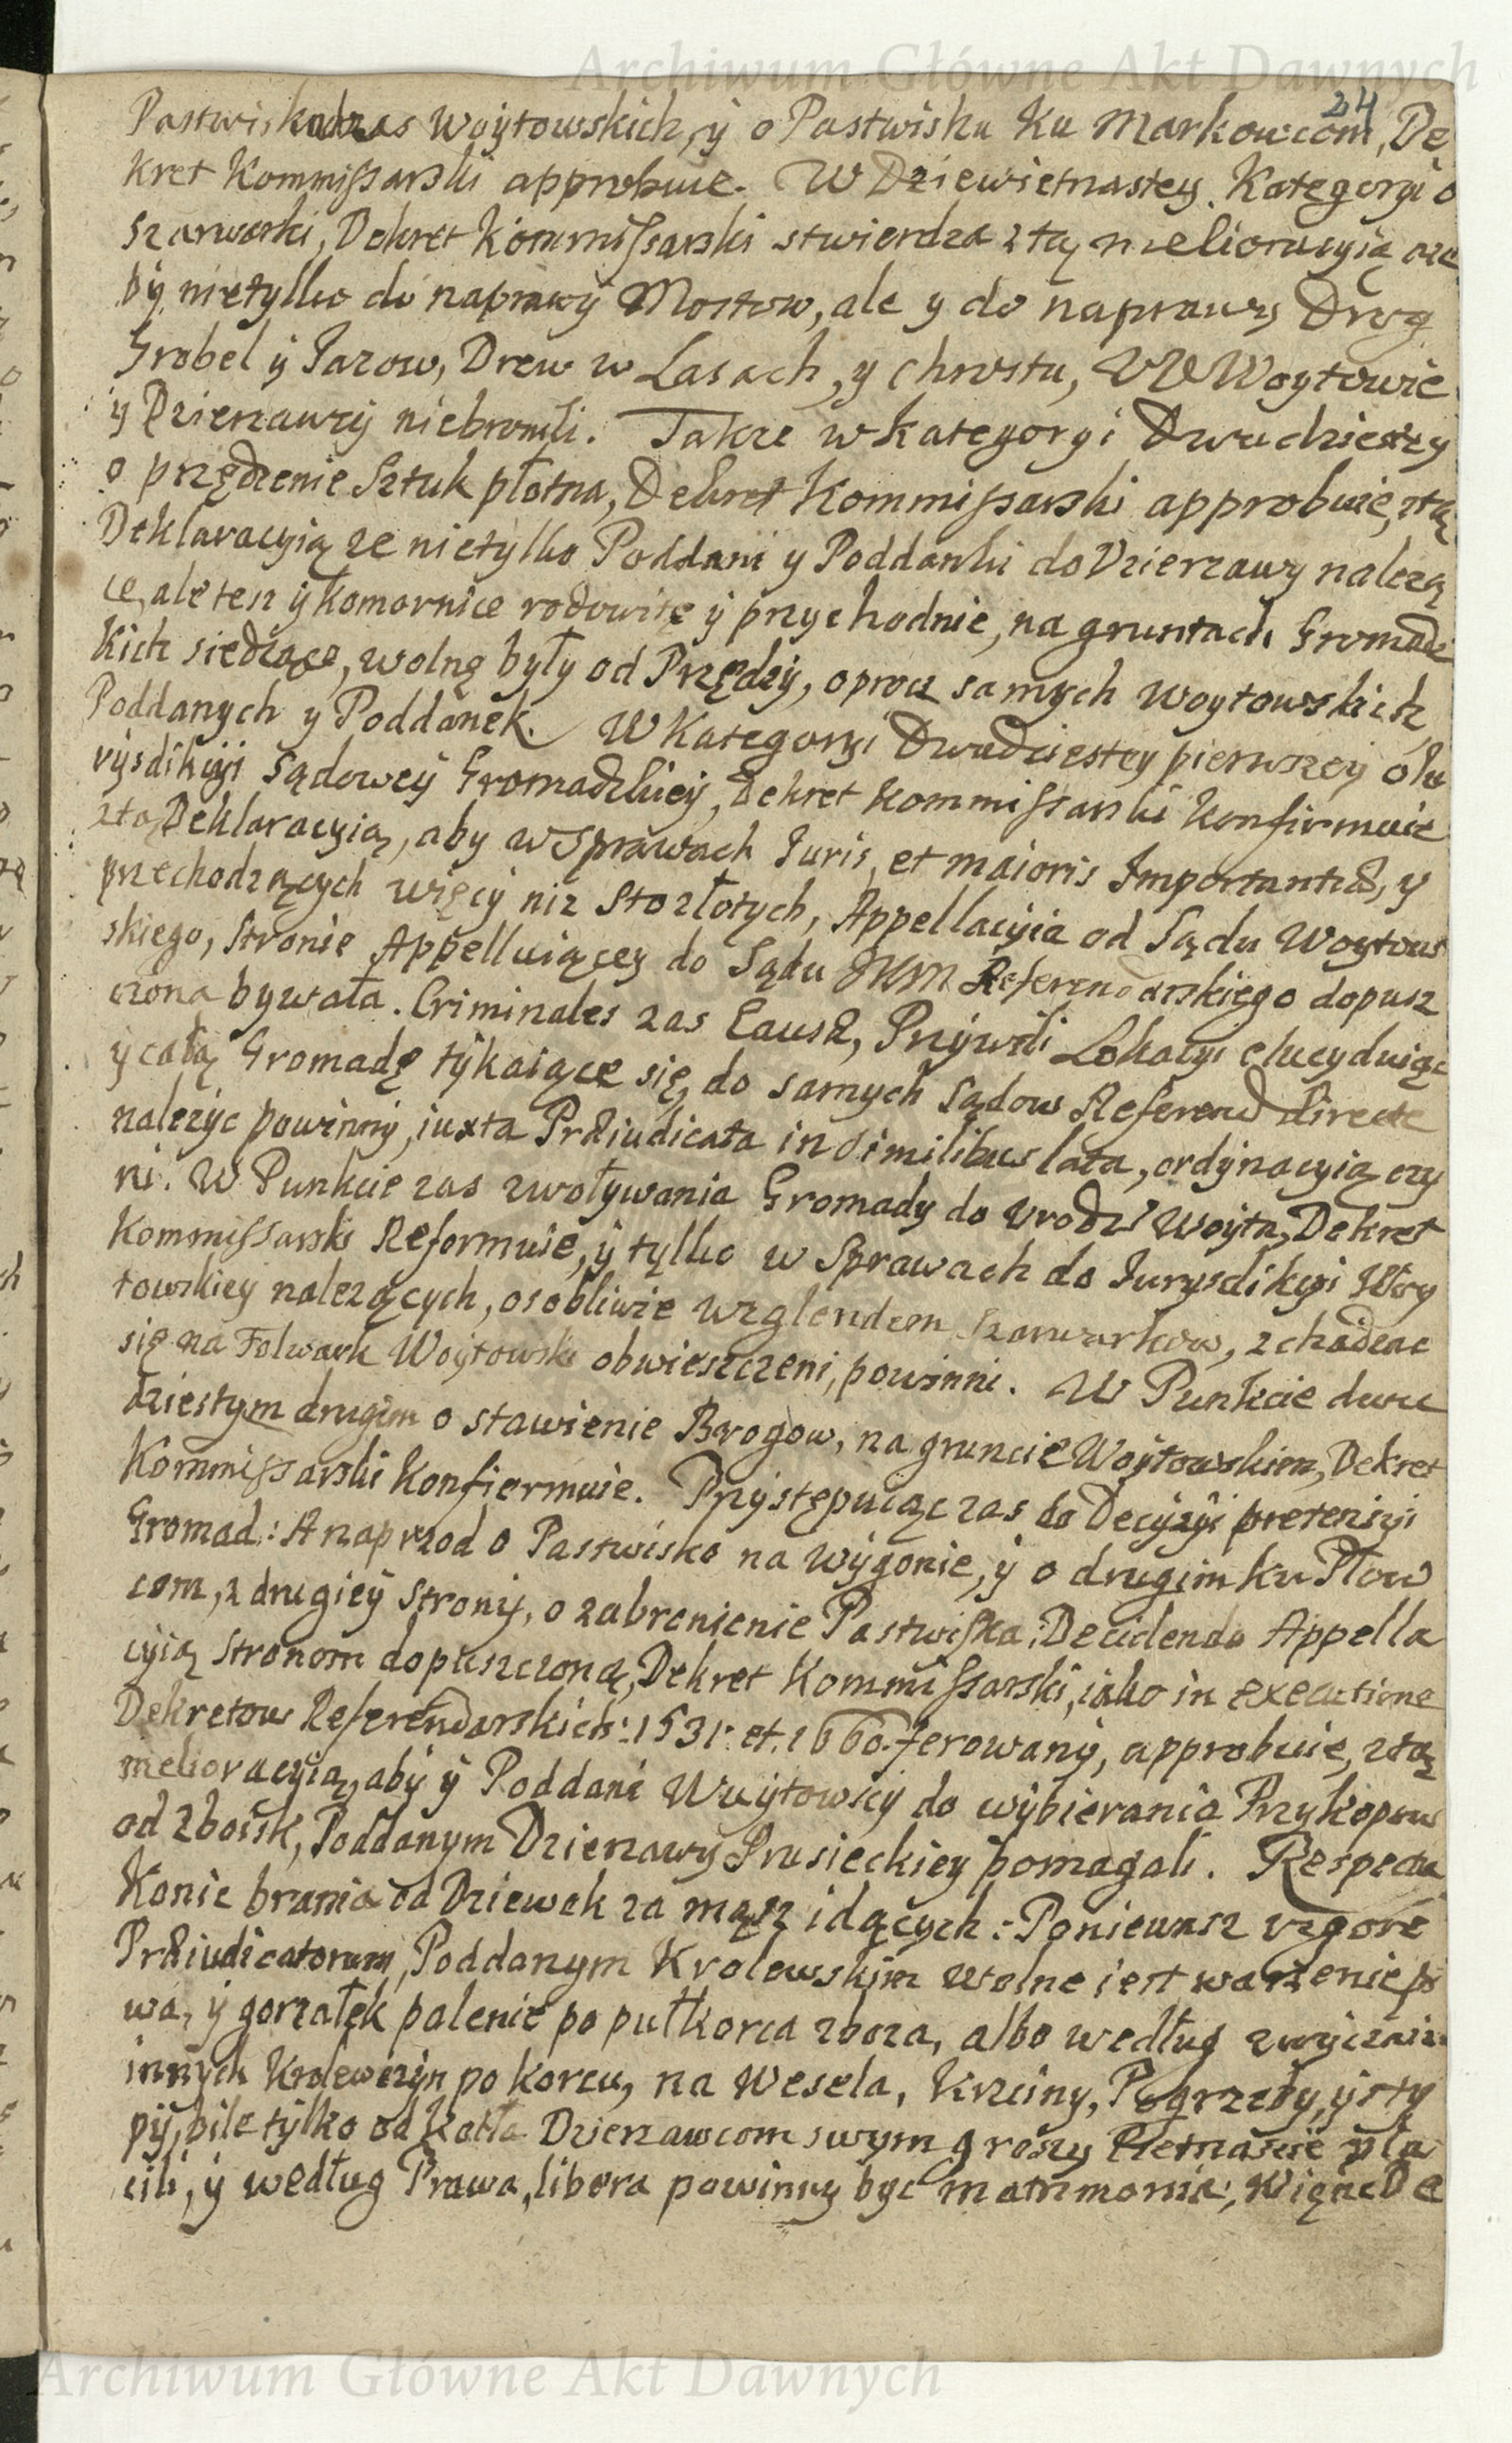 Archiwum Główne Akt Dawnych
24
Pastwiska zas Woytowskich, y o Pastwisku Ku Markowcom, De
kret Kommissarski approbuie. W Dziewietnastey Kategoryi o
szarwarki, Dekret Kommissarski stwierdza z tą melioracyią aze
by nietylko do naprawy Mostow, ale y do naprawy Drog
Grobel y Jazow, Drew w Lasach, y chrostu, WW Woytowie
y Dzierzawcy niebronili. Takze w kategoryi Dwudziestey
o przędzenie Sztuk płotna, Dekret Kommissarski approbuie, ztą
Deklaracyią ze nietylko Poddani y Poddanki do Dzierzawy nalezą
ce, ale tesz y Komornice rodowite y przychodnie, na gruntach Gromadz
kich siedzące, wolne były od Przędzy, oprocz samych Woytowskich
Poddanych y Poddanek. W Kategoryi Dwudziestey pierwszey o Iu
rysdikcyi Sądowey Gromadzkiey, Dekret Kommissarski Konfirmuie
ztą Deklaracyią, aby w Sprawach Iuris, et maioris Importantiæ, y
przechodzących więcy niz Sto złotych, Appellacyia od Sądu Woytow
skiego, Stronie Appelluiącey do Sądu JKM Referendarskiego dopusz
czona bywała. Criminales zas Causæ, Przywili Lokacyi elucyduiąc
y całą Gromadę tykaiące się, do samych Sądow Referend directe
nalezyc powinny, iuxta Præiudicata in Similibus lata, ordynacyią czy
ni. W Punkcie zas zwoływania Gromady do Vrodz Woyta, Dekret
Kommissarski Reformuie, y tylko w Sprawach do Iurysdikcyi Woy
towskiey nalezących, osobliwie wzglendem Szarwarkow, zchadzac
się na Folwark Woytowski obwieszczeni, powinni. W Punkcie dwu
dziestym drugim o stawienie Brogow, na gruncie Woytowskim, Dekret
Kommissarski Konfiermuie. Przystępuiąc zas do Decyzyi pretensyi
Gromad: A naprzod o Pastwisko na Wygonie, y o drugim ku Płow
com, z drugiey Strony, o zabronienie Pastwiska: Decidendo Appella
cyią Stronom dopuszczoną, Dekret Kommissarski, iako in executione
Dekretow Referendarskich: 1531: et. 1660. ferowany, approbuie, ztą
melioracyią, aby y Poddani Wuytowscy do wybierania Przykopow
od Zboisk, Poddanym Dzierzawy Prusieckiey pomagali. Respectu
Konic brania od Dziewek za mąsz idących: Poniewasz vzgore
Præiudicatorum, Poddanym Krolewskim wolne iest warzenie pi
wa, y gorzałek palenie po pułkorca zboza, albo według zwyczaiu
innych Krolewszczyn po korcu, na Wesela, Krzciny, Pogrzeby, y sty
py, bile tylko od Kotła Dzierzawcom swym groszy Pietnascie pła
cili, y według Prawa, libera powinny byc matrimonia; Więnc De
Archiwum Główne Akt Dawnych